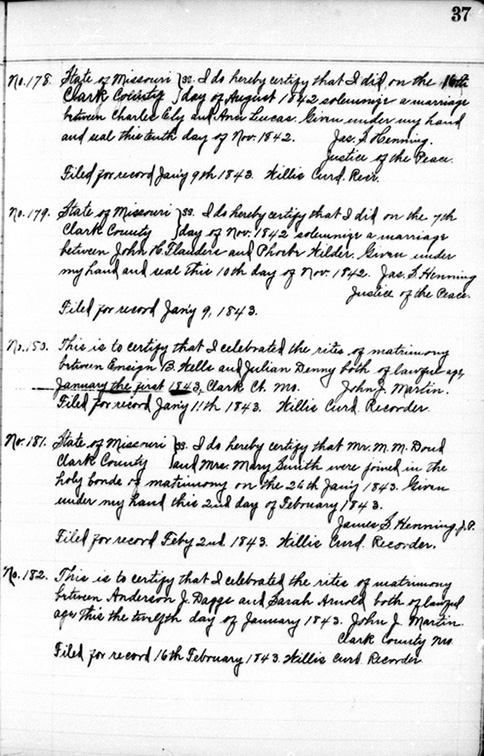 37
No. 178. State of Missouri } ss. I do hereby certify that I did on the 16th
Clark County } day of August 1842 solemnize a marriage
between Charles Ely and Ann Lucas. Given under my hand
and seal this tenth day of Nov. 1842. Jas. S. Henning.
Justice of the Peace.
Filed for record Jan'y 9th 1843. Willis Curd. Recr.
No. 179. State of Missouri } ss. I do hereby certify that I did on the 7th
Clark County } day of Nov. 1842 solemnize a marriage
between John H. Flanders and Phoebe Wilder. Given under
my hand and seal this 10th day of Nov. 1842. Jas. S. Henning
Justice of the Peace.
Filed for record Jan'y 9, 1843.
No. 153. This is to certify that I celebrated the rites of matrimony
between Ensign B. Wells and Julian Denny both of lawful age,
January the first 1843, Clark Ct. Mo. John J. Martin.
Filed for record Jan'y 11th 1843. Willis Curd. Recorder.
No. 181. State of Missouri } ss. I do hereby certify that Mr. M. M. Doud
Clark County } and Mrs. Mary Smith were joined in the
holy bonds of matrimony on the 26th Jan'y 1843. Given
under my hand this 2nd day of February 1843.
James S. Henning J.P.
Filed for record Feby 2nd 1843. Willis Curd. Recorder.
No. 182. This is to certify that I celebrated the rites of matrimony
between Anderson J. Daggs and Sarah Arnold both of lawful
age, this the twelfth day of January 1843. John J. Martin.
Clark County Mo.
Filed for record 16th February 1843. Willis Curd Recorder